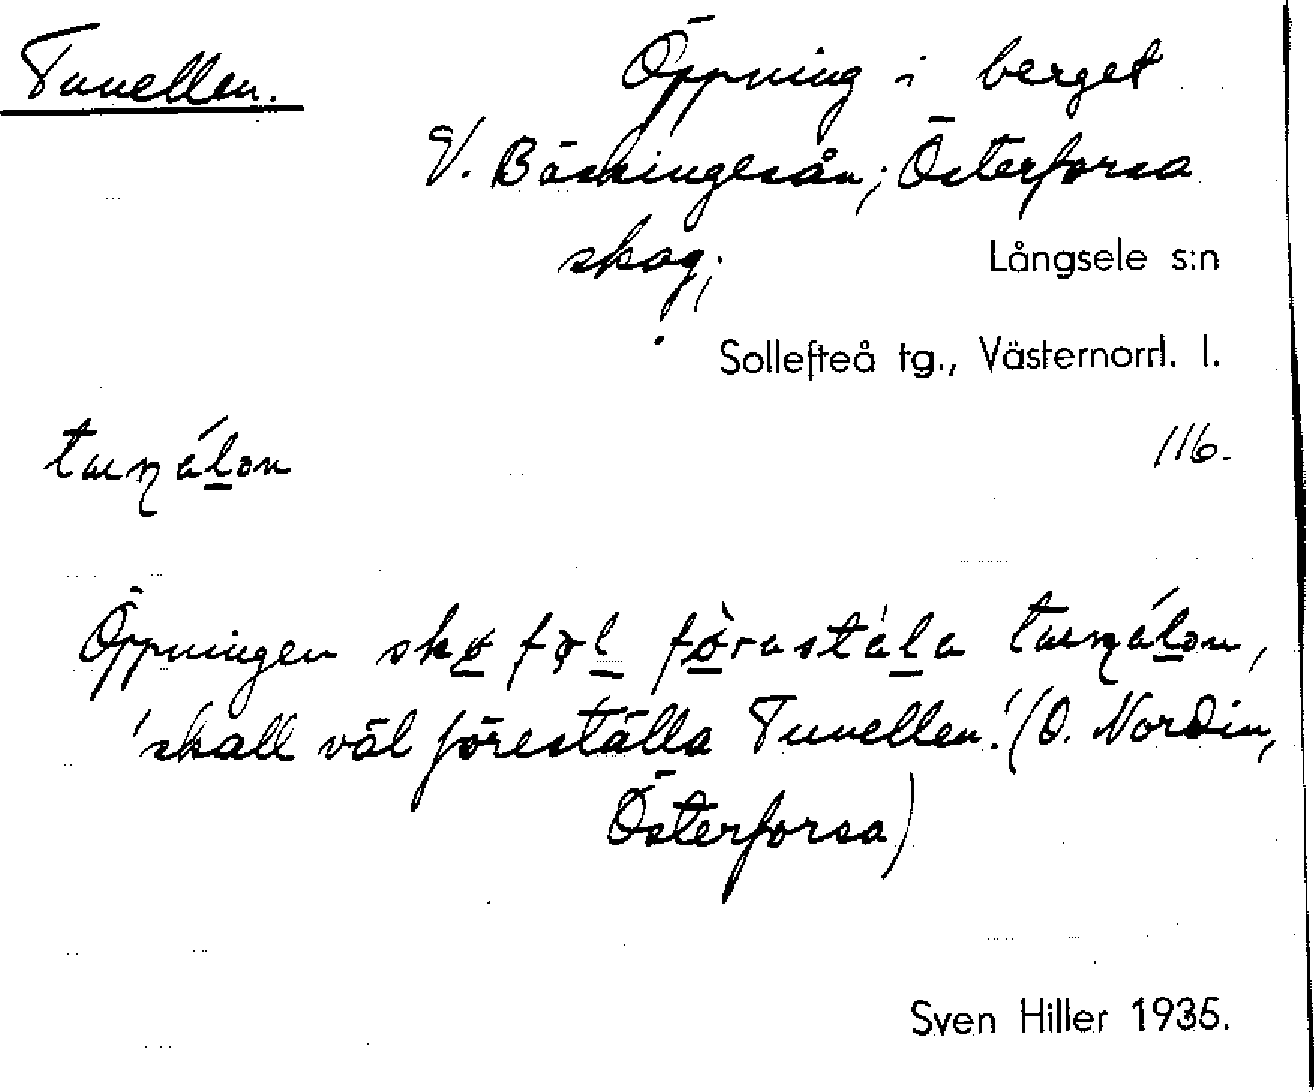 Tunellen.
Öppning i berget
V. Bäskingesån; Österforsa
skog;
Långsele s:n
Sollefteå tg., Västernorrl. l.
116.
Öppningen
'skall väl föreställa Tunellen.' (O. Nordin,
Österforsa)
Sven Hiller 1935.